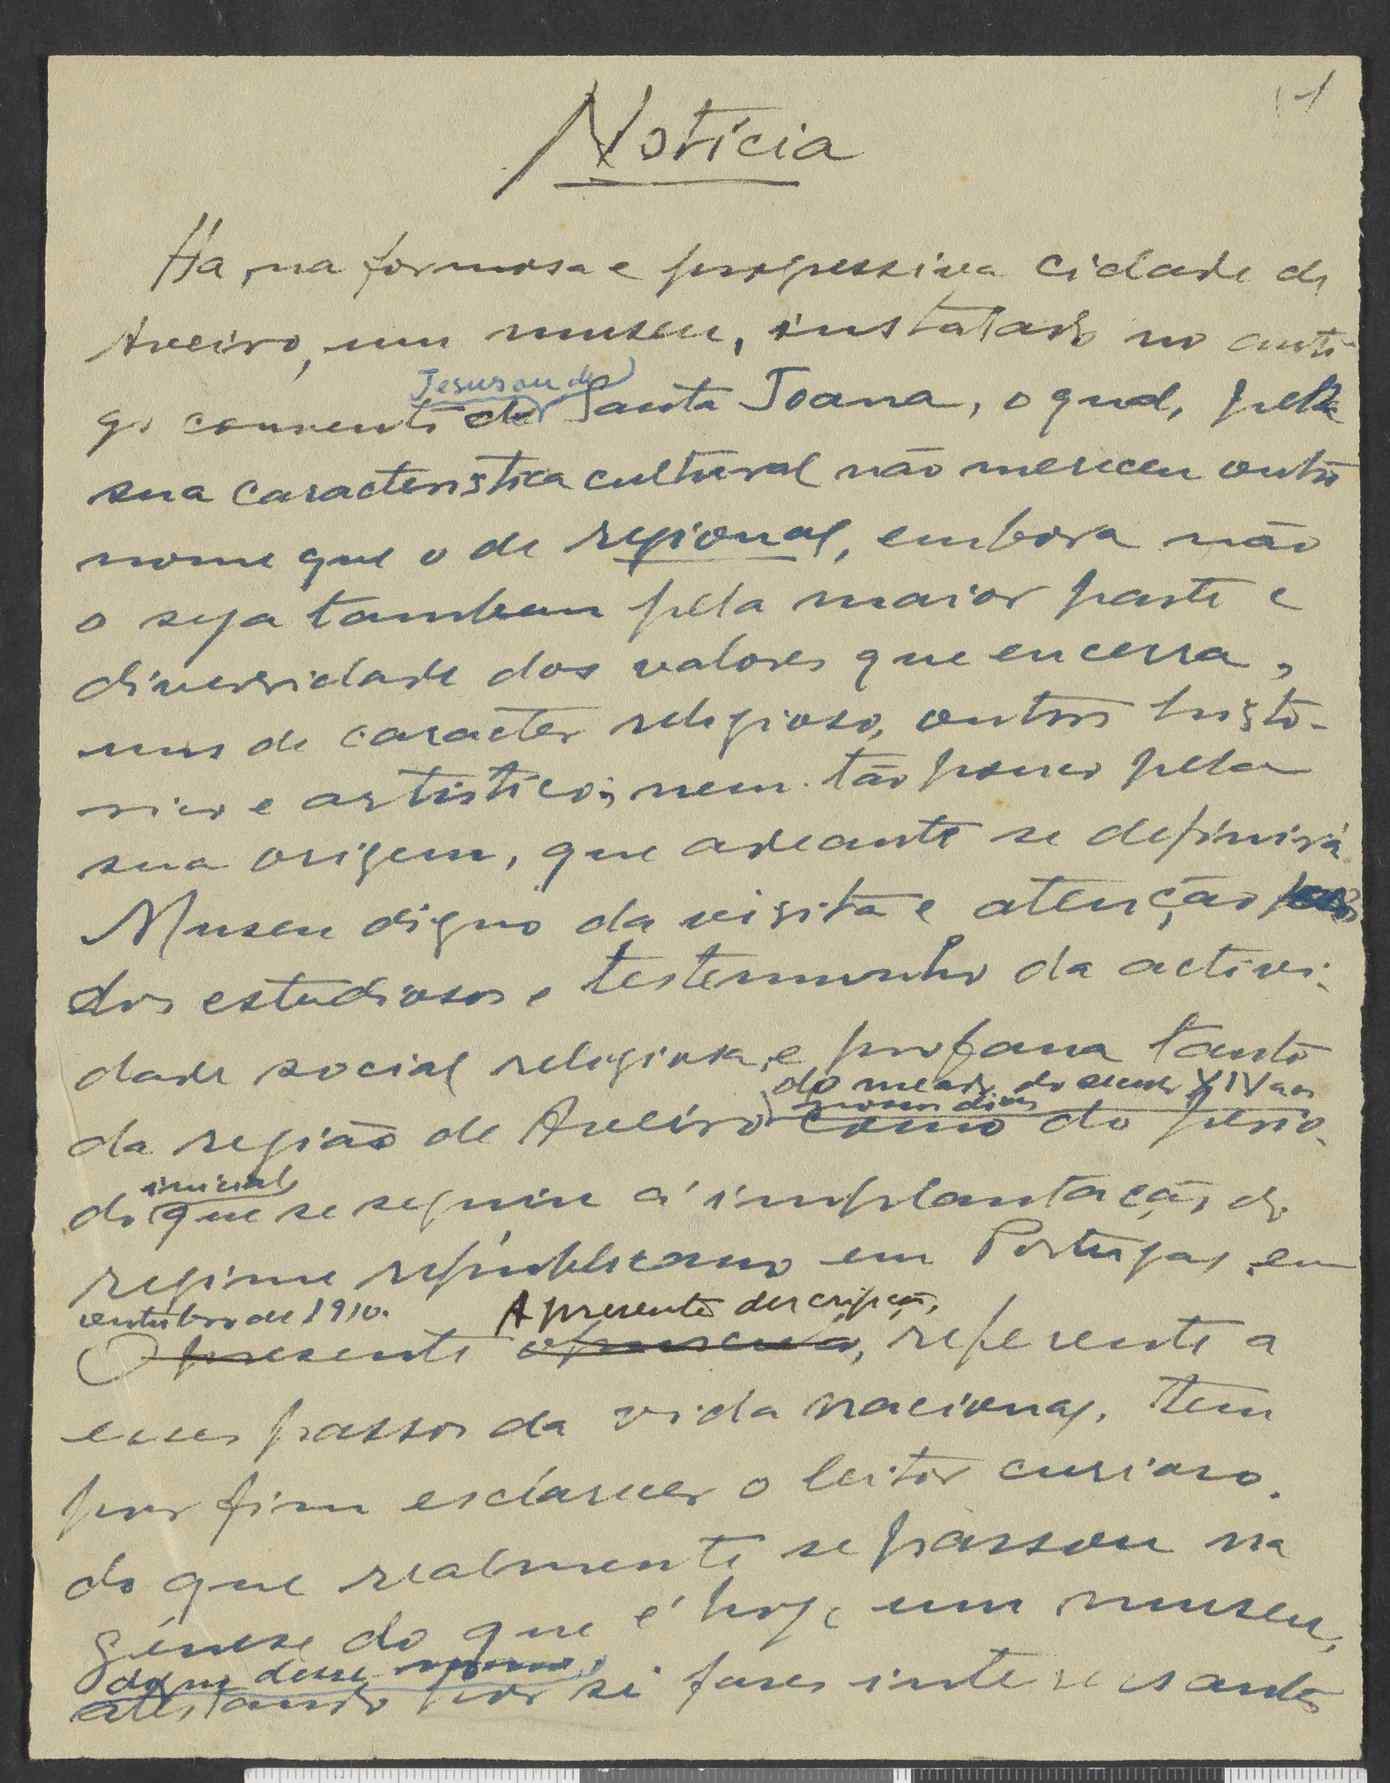 1
Notícia
Há, na formosa e progressiva cidade de
Aveiro, um museu, instalado no anti-
Jesus ou de
go convento de Santa Joana, o qual, pela
sua caracteristica cultural não mereceu outro
nome que o de regional, embora não
o seja tambem pela maior parte e
diversidade dos valores que encerra,
uns de caracter religioso, outros histo-
rico e artistico; nem tão pouco pela
sua origem, que adeante se definirá
Museu digno da visita e atenção
dos estudiosos e testemunho da activi-
dade social religiosa e profana tanto
do meado do seculo XIV aos
nossos dias
da região de Aveiro como do perio-
inicial
do que se seguiu á implantação do
regime republicano em Portugal, em
outubro de 1910. A presente descripção,
O presente opusculo, referente a
esses passos da vida nacional, tem
por fim esclarecer o leitor curioso.
do que realmente se passou na
génese do que é hoje um museu,
desse
atestando por si fases interessantes